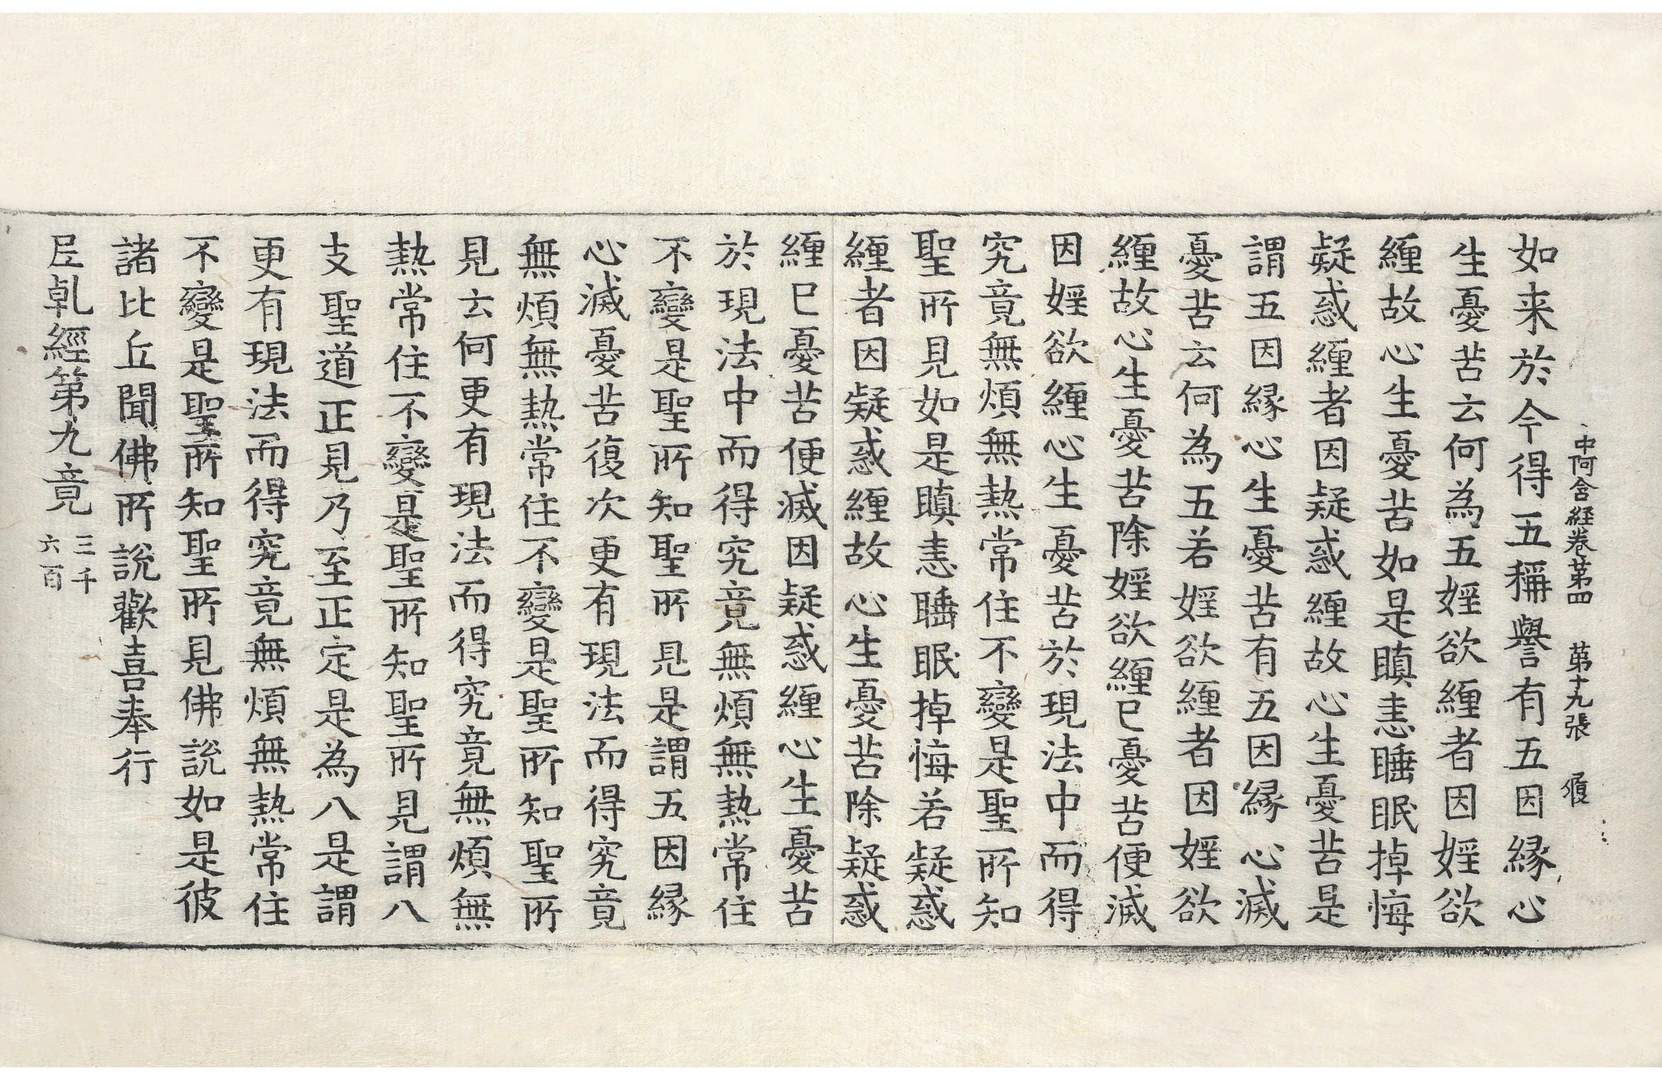 中阿含経卷第四　第十九張　履
如来於今得五稱譽有五因緣心
生憂苦云何為五婬欲纏者因婬欲
纏故心生憂苦如是瞋恚睡眠掉悔
疑惑纏者因疑惑纏故心生憂苦是
謂五因緣心生憂苦有五因緣心滅
憂苦云何為五若婬欲纏者因婬欲
纏故心生憂苦除婬欲纏已憂苦便滅
因婬欲纏心生憂苦於現法中而得
究竟無煩無熱常住不變是聖所知
聖所見如是瞋恚睡眠掉悔若疑惑
纏者因疑惑纏故心生憂苦除疑惑
纏已憂苦便滅因疑惑纏心生憂苦
於現法中而得究竟無煩無熱常住
不變是聖所知聖所見是謂五因緣
心滅憂苦復次更有現法而得究竟
無煩無熱常住不變是聖所知聖所
見云何更有現法而得究竟無煩無
熱常住不變是聖所知聖所見謂八
支聖道正見乃至正定是為八是謂
更有現法而得究竟無煩無熱常住
不變是聖所知聖所見佛說如是彼
諸比丘聞佛所說歡喜奉行
尼乹經第九竟　三千六百